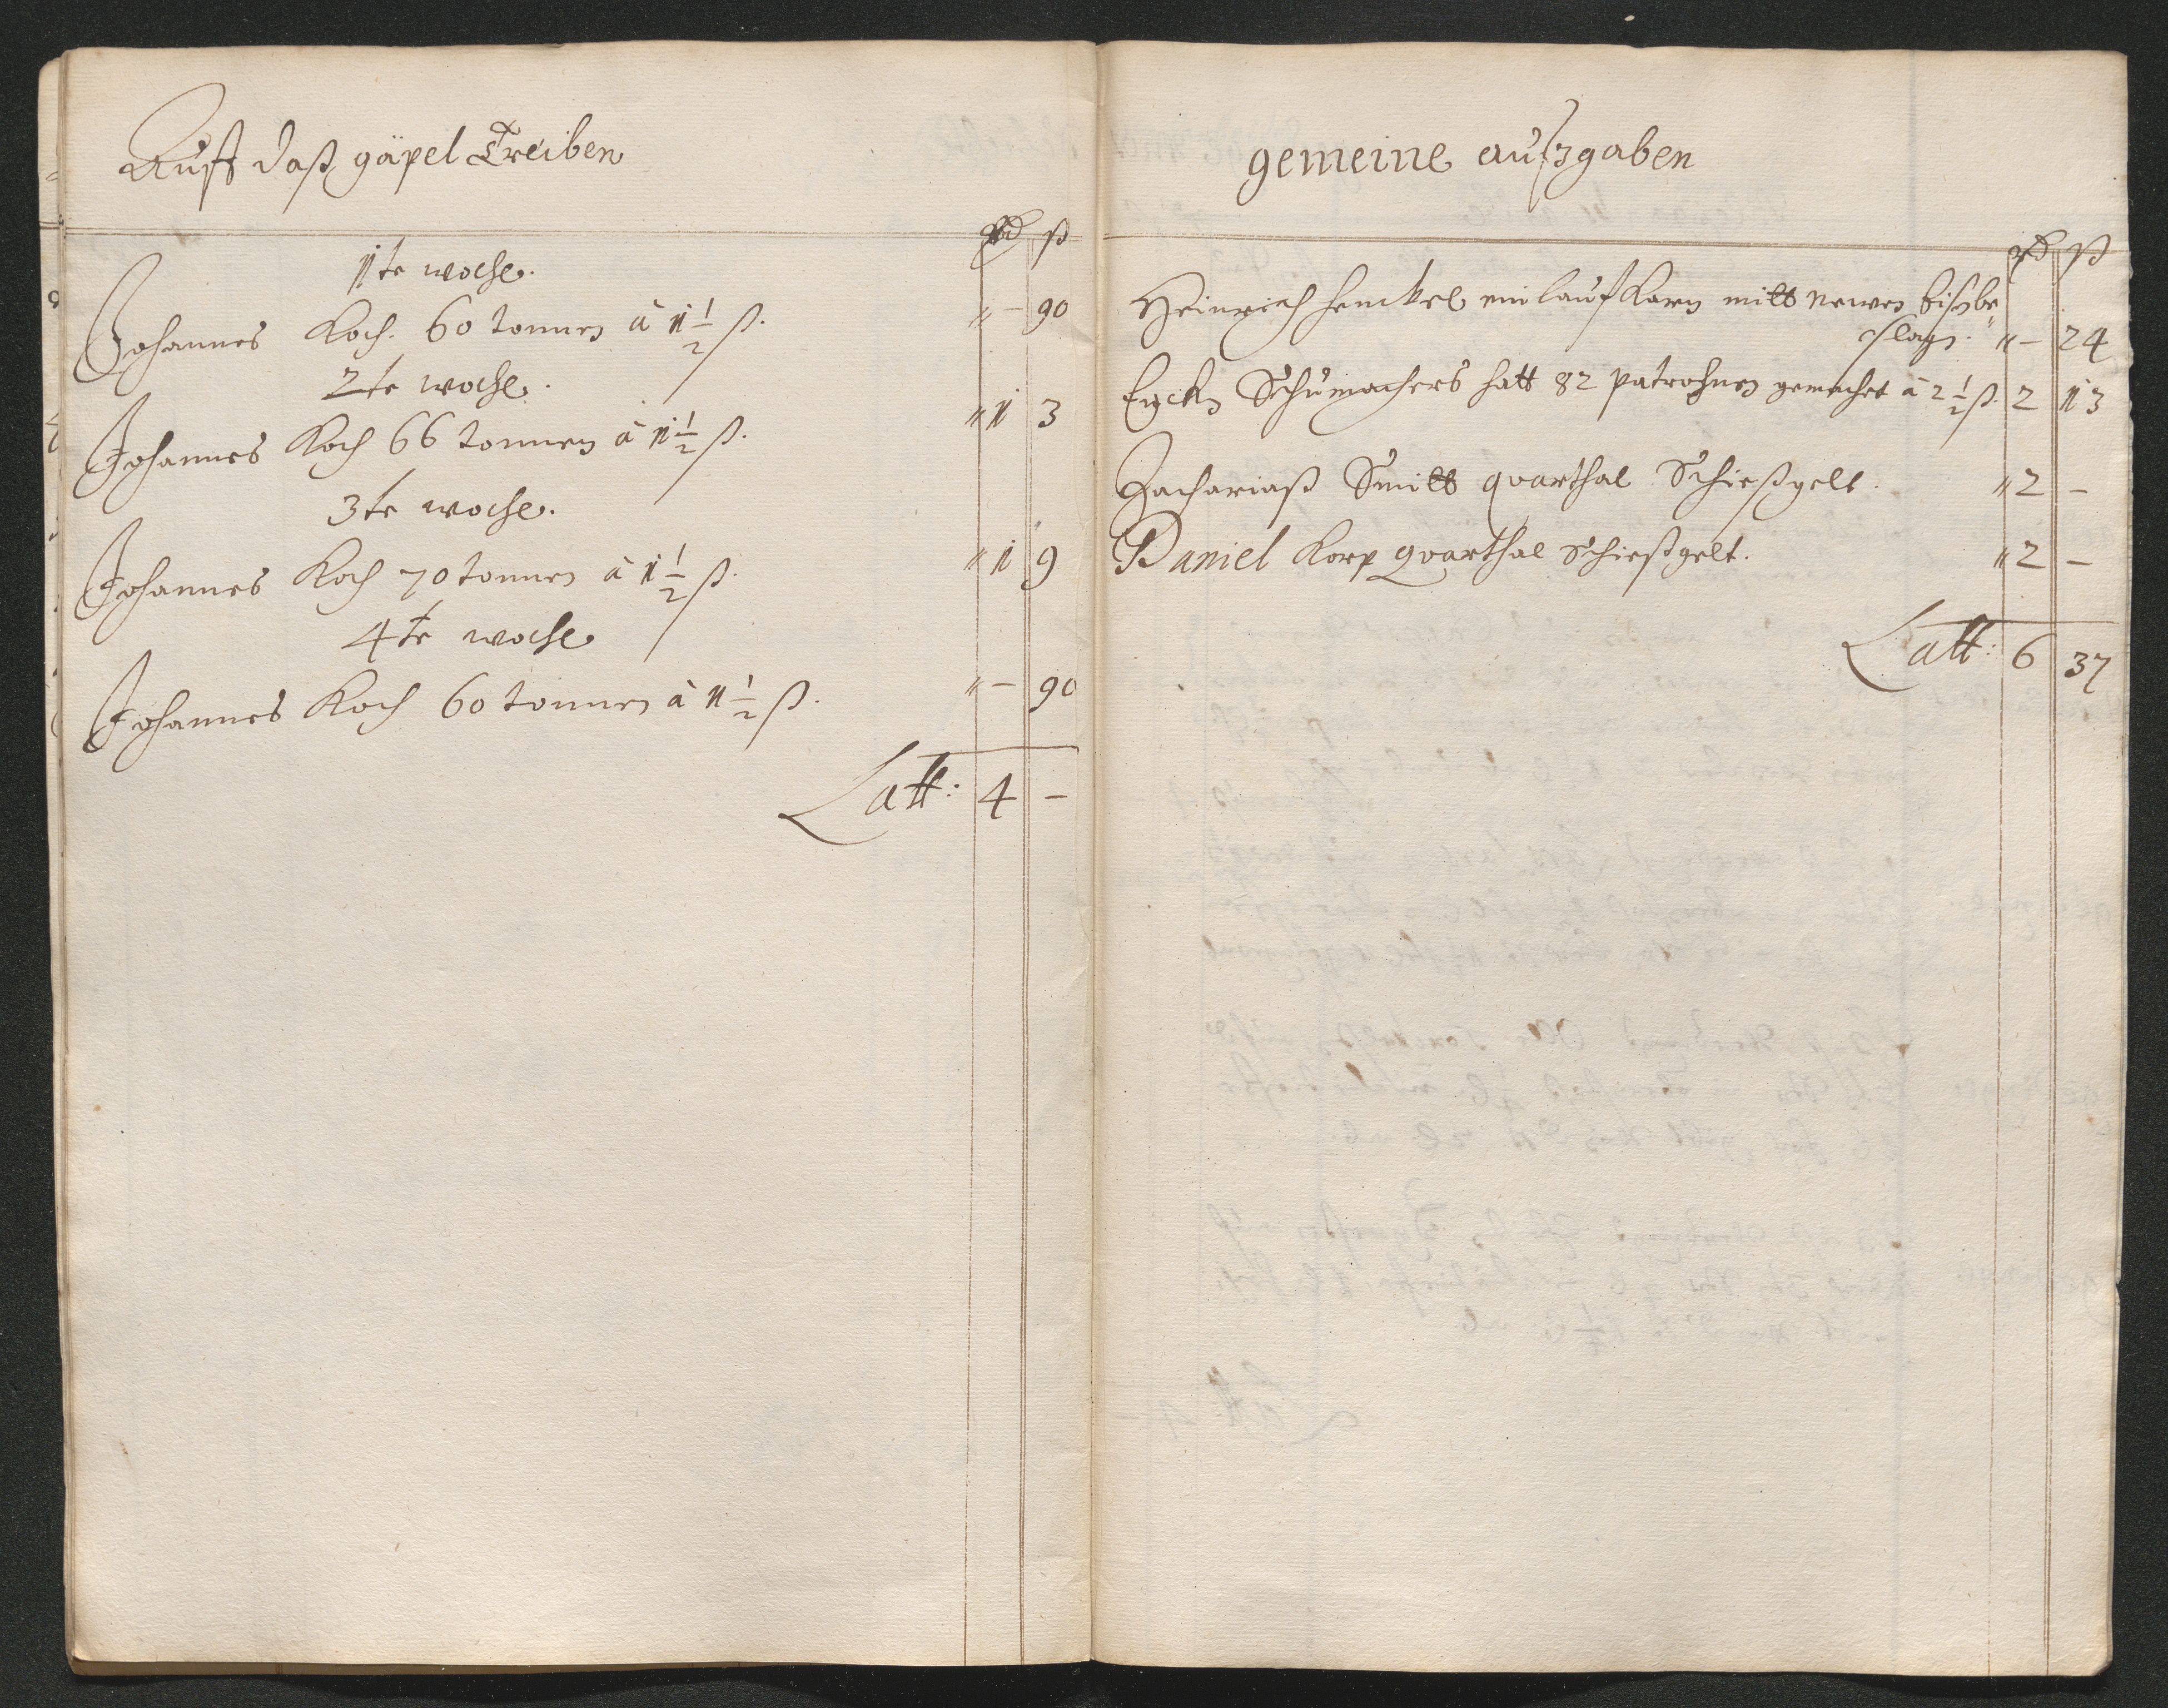 Auff daß gäpel Treiben
rd ß
1te woche.
Johannes Koch. 60 tonnen à 1 1/2 ß. " - 90
2te woche.
Johannes Koch 66 tonnen à 1 1/2 ß. " 1 3
3te woche.
Johannes Koch 70 tonnen à 1 1/2 ß. " 1 9
4te woche
Johannes Koch 60 tonnen à 1 1/2 ß. " - 90
Latt: 4 -
gemeine aufzgaben
rd ß
Heinrich henckel ein lauf Karn mitt newen
slagn. " - 24
Schumachers hatt 82 patrohnen gemachet à 2 1/2 ß. 2 13
Zachariaß Smitt quarthal Schießgelt. " 2 -
Daniel Korp quarthal Schießgelt. " 2 -
Latt: 6 37